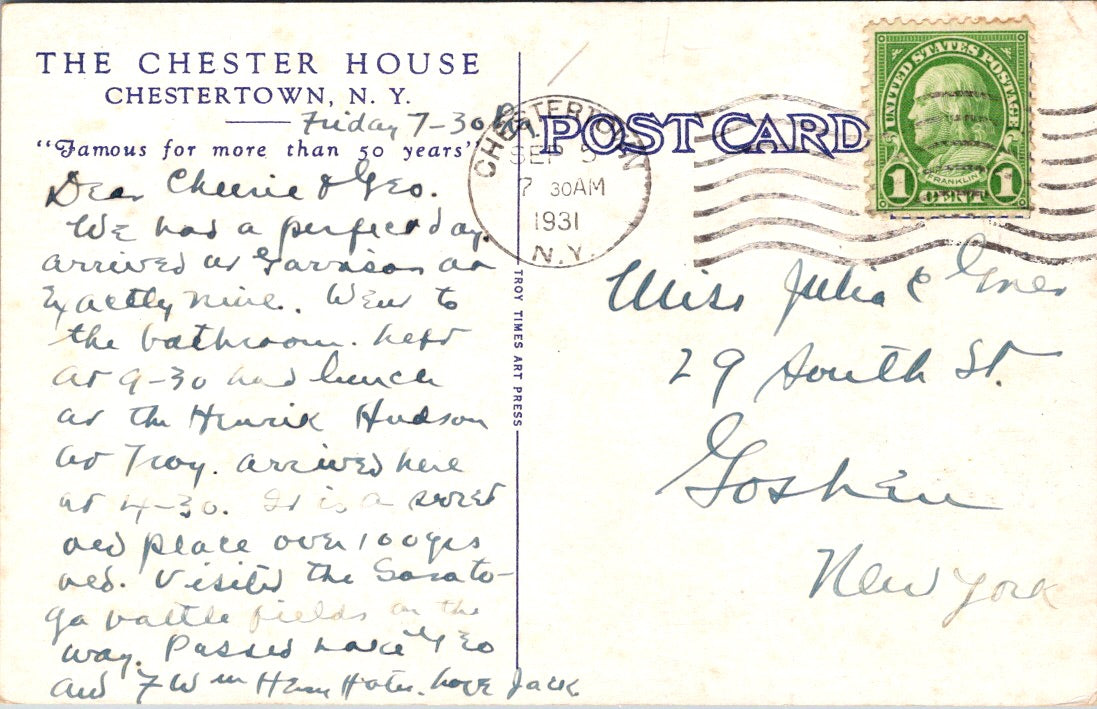 THE CHESTER HOUSE
CHESTERTOWN, N. Y.
Friday 7-30 P.
"Famous for more than 50 years"
Dear Cherie & Geo.
We had a perfect day.
arrived at Garrison at
Exactly nine. Went to
the bathroom. left
at 9-30 had lunch
at the Henrik Hudson
at Troy. arrived here
at 4-30. It is a sweet
old place over 100 yrs
old. Visited the Sarato-
ga battle fields on the
way. Passed Lake Geo
and Hotel. Love Jack
TROY TIMES ART PRESS
POST CARD
CHESTERTOWN
SEP 5
7 30AM
1931
N.Y.
UNITED STATES POSTAGE
FRANKLIN
1 CENT 1
Miss Julia
29 South St.
Goshen
New York